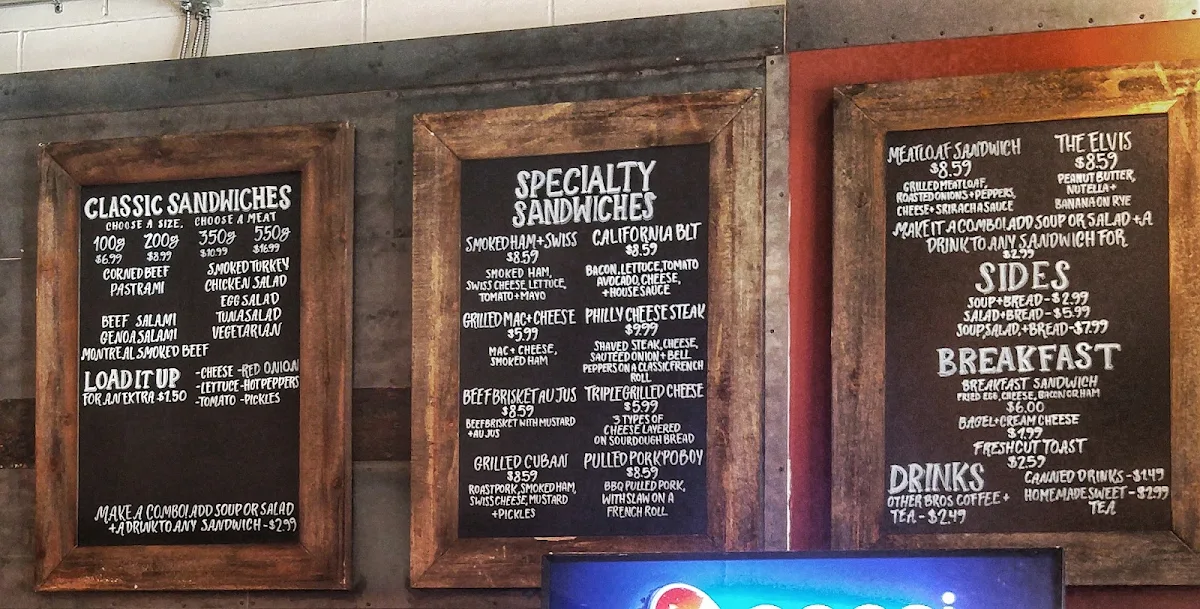 CLASSIC SANDWICHES
CHOOSE A SIZE, CHOOSE A MEAT
100g 200g 350g 550g
$6.99 $8.99 $10.99 $16.99
CORNED BEEF
PASTRAMI
BEEF SALAMI
GENOA SALAMI
MONTREAL SMOKED BEEF
SMOKED TURKEY
CHICKEN SALAD
EGG SALAD
TUNA SALAD
VEGETARIAN
LOAD IT UP
FOR AN EXTRA $1.50
-CHEESE -RED ONION
-LETTUCE -HOT PEPPERS
-TOMATO -PICKLES
MAKE A COMBO! ADD SOUP OR SALAD
+A DRINK TO ANY SANDWICH -$2.99
SPECIALTY
SANDWICHES
SMOKED HAM + SWISS
$8.59
SMOKED HAM,
SWISS CHEESE, LETTUCE,
TOMATO + MAYO
CALIFORNIA BLT
$8.59
BACON, LETTUCE, TOMATO
AVOCADO, CHEESE,
+ HOUSE SAUCE
GRILLED MAC + CHEESE
$5.99
MAC + CHEESE,
SMOKED HAM
PHILLY CHEESE STEAK
$9.99
SHAVED STEAK, CHEESE,
SAUTEED ONION + BELL
PEPPERS ON A CLASSIC FRENCH
ROLL
BEEF BRISKET AU JUS
$8.59
BEEF BRISKET WITH MUSTARD
+ AU JUS
TRIPLE GRILLED CHEESE
$5.99
3 TYPES OF
CHEESE LAYERED
ON SOURDOUGH BREAD
GRILLED CUBAN
$8.59
ROAST PORK, SMOKED HAM,
SWISS CHEESE, MUSTARD
+ PICKLES
PULLED PORK 'PO BOY
$8.59
BBQ PULLED PORK,
WITH SLAW ON A
FRENCH ROLL
MEATLOAF SANDWICH
$8.59
GRILLED MEATLOAF,
ROASTED ONIONS + PEPPERS,
CHEESE + SRIRACHA SAUCE
THE ELVIS
$8.59
PEANUT BUTTER,
NUTELLA +
BANANA ON RYE
MAKE IT A COMBO! ADD SOUP OR SALAD + A
DRINK TO ANY SANDWICH FOR
$2.99
SIDES
SOUP + BREAD - $2.99
SALAD + BREAD - $5.99
SOUP, SALAD, + BREAD - $7.99
BREAKFAST
BREAKFAST SANDWICH
FRIED EGG, CHEESE, BACON OR HAM
$6.00
BAGEL + CREAM CHEESE
$1.99
FRESH CUT TOAST
$2.59
DRINKS
OTHER BROS COFFEE +
TEA - $2.49
CANNED DRINKS - $1.49
HOMEMADE SWEET - $2.99
TEA
pepsi